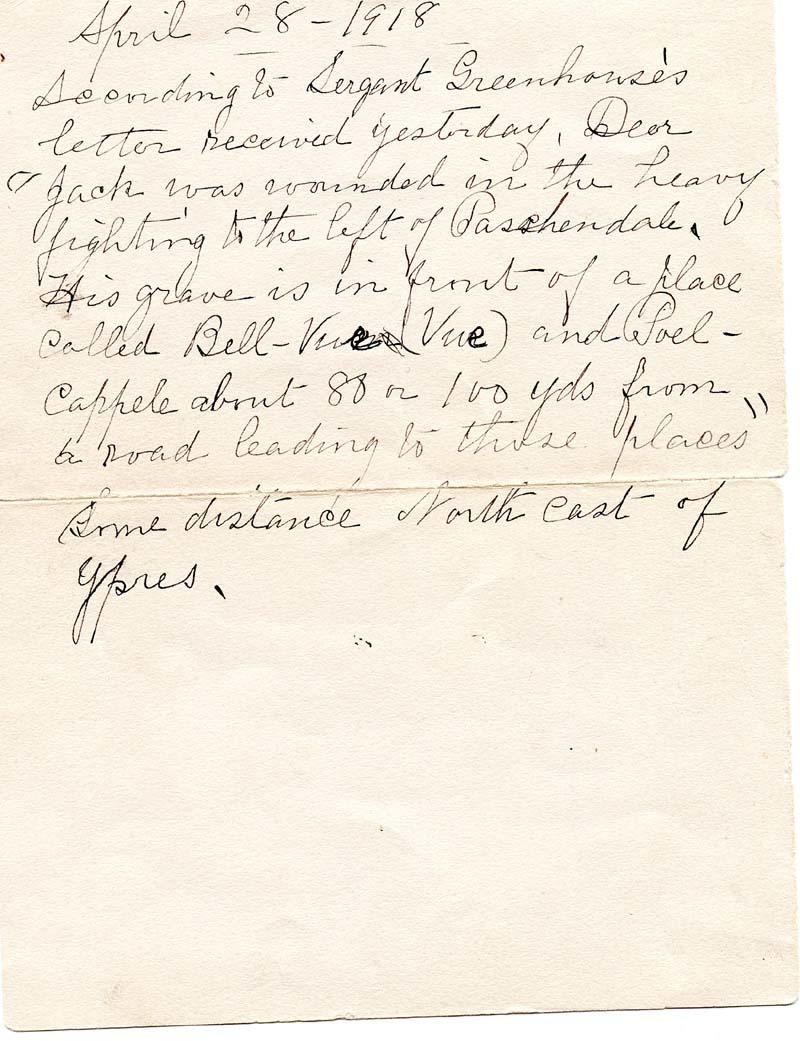 April 28-1918
According to Sergant Greenhouse's
letter received yesterday, Dear
" Jack was wounded in the heavy
fighting to the left of Passchendale.
His grave is in front of a place
called Bell-Vue (Vue) and Poel-
Cappele about 80 or 100 yds from
a road leading to those places"
Some distance North East of
Ypres.